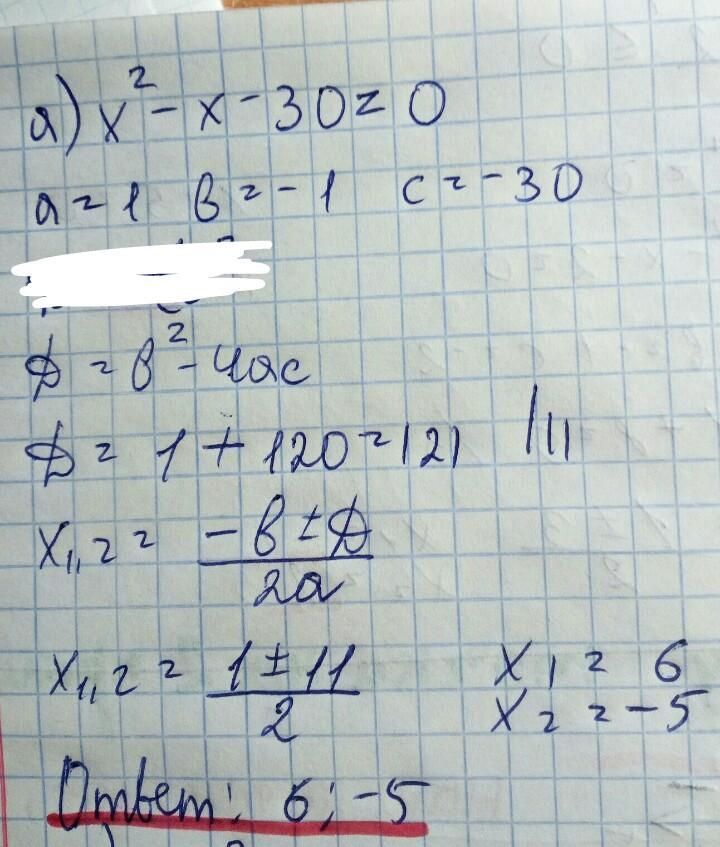 а) x² - x - 30 = 0
a = 1 b = -1 c = -30
D = b² - 4ac
D = 1 + 120 = 121 /11
x₁,₂ = (-b ± D)/(2a)
x₁,₂ = (1 ± 11)/2 x₁ = 6
x₂ = -5
Ответ: 6; -5